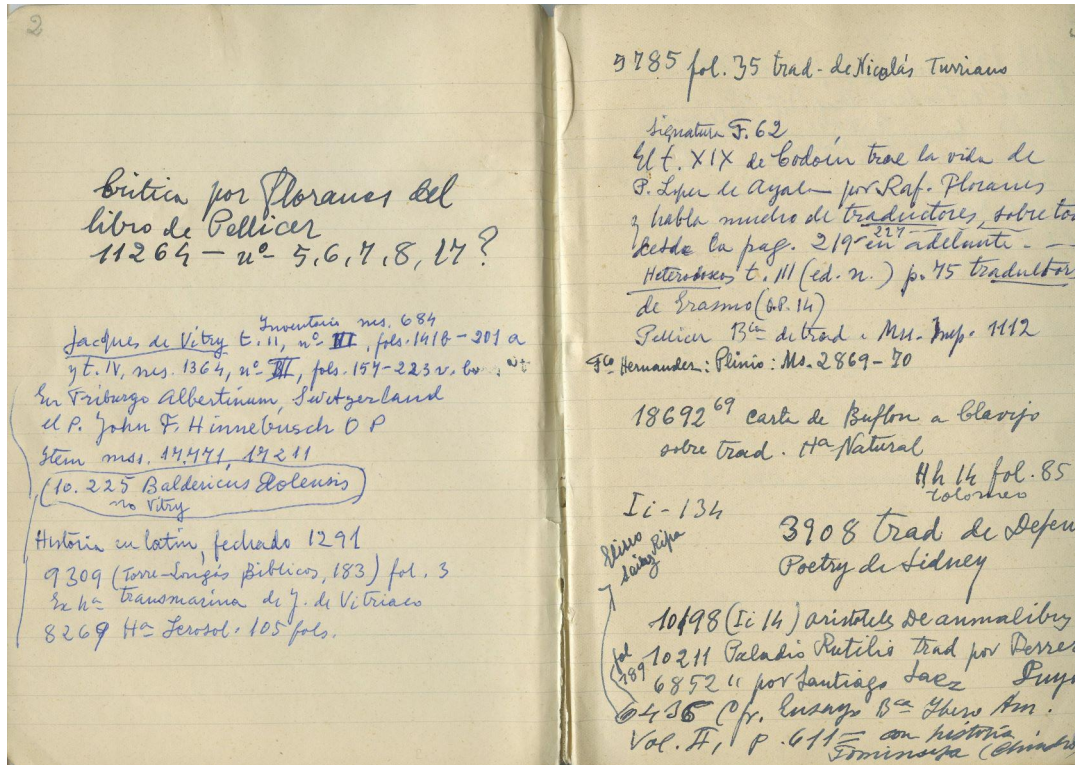 2
Crítica por Floranes del
libro de Pellicer
11264 – nº 5, 6, 7, 8, 17?
Inventario ms. 684
Jacques de Vitry t. II, nº III, fols. 141b–201a
y t. IV, ms. 1364, nº III, fols. 157–223v.
En Friburgo Albertinum, Switzerland
el P. John F. Hinnebusch O P
Item mss. 17.471, 17211
(10.225 Baldericus Dolensis
no Vitry
Historia en latín, fechado 1291
9309 (Torre-Longás Bíblicos, 183) fol. 3
Ex hª transmarina de J. de Vitriaco
8269 Hª Jerosol. 105 fols.
5785 fol. 35 trad. de Nicolás Turriano
Signatura F. 62
El t. XIX de Codoín trae la vida de
P. López de Ayala por Raf. Floranes
y habla mucho de traductores, sobre to
desde la pag. 219 en adelante. —
227
Heterodoxos t. III (ed. n.) p. 75 traductor
de Erasmo (G.P. 14)
Pellicer Bca de trad. Mss. Imp. 1112
Fco Hernander: Plinio: Ms. 2869–70
18692 69 carta de Buffon a Clavijo
sobre trad. Hª Natural
Hh 14 fol. 85
tolomeo
Ii–134
3908 trad de Defen
Poetry de Sidney
Eliseo
Sainz Ripa
10198 (Ii 14) aristoteles De anmalibus
fol 189
10211 Paladio Rutilio trad por Ferrer
6852 " por Santiago Saez
6436 Cfr. Ensayo Bca Ybero Am.
Vol. II, p. 611 = con historia